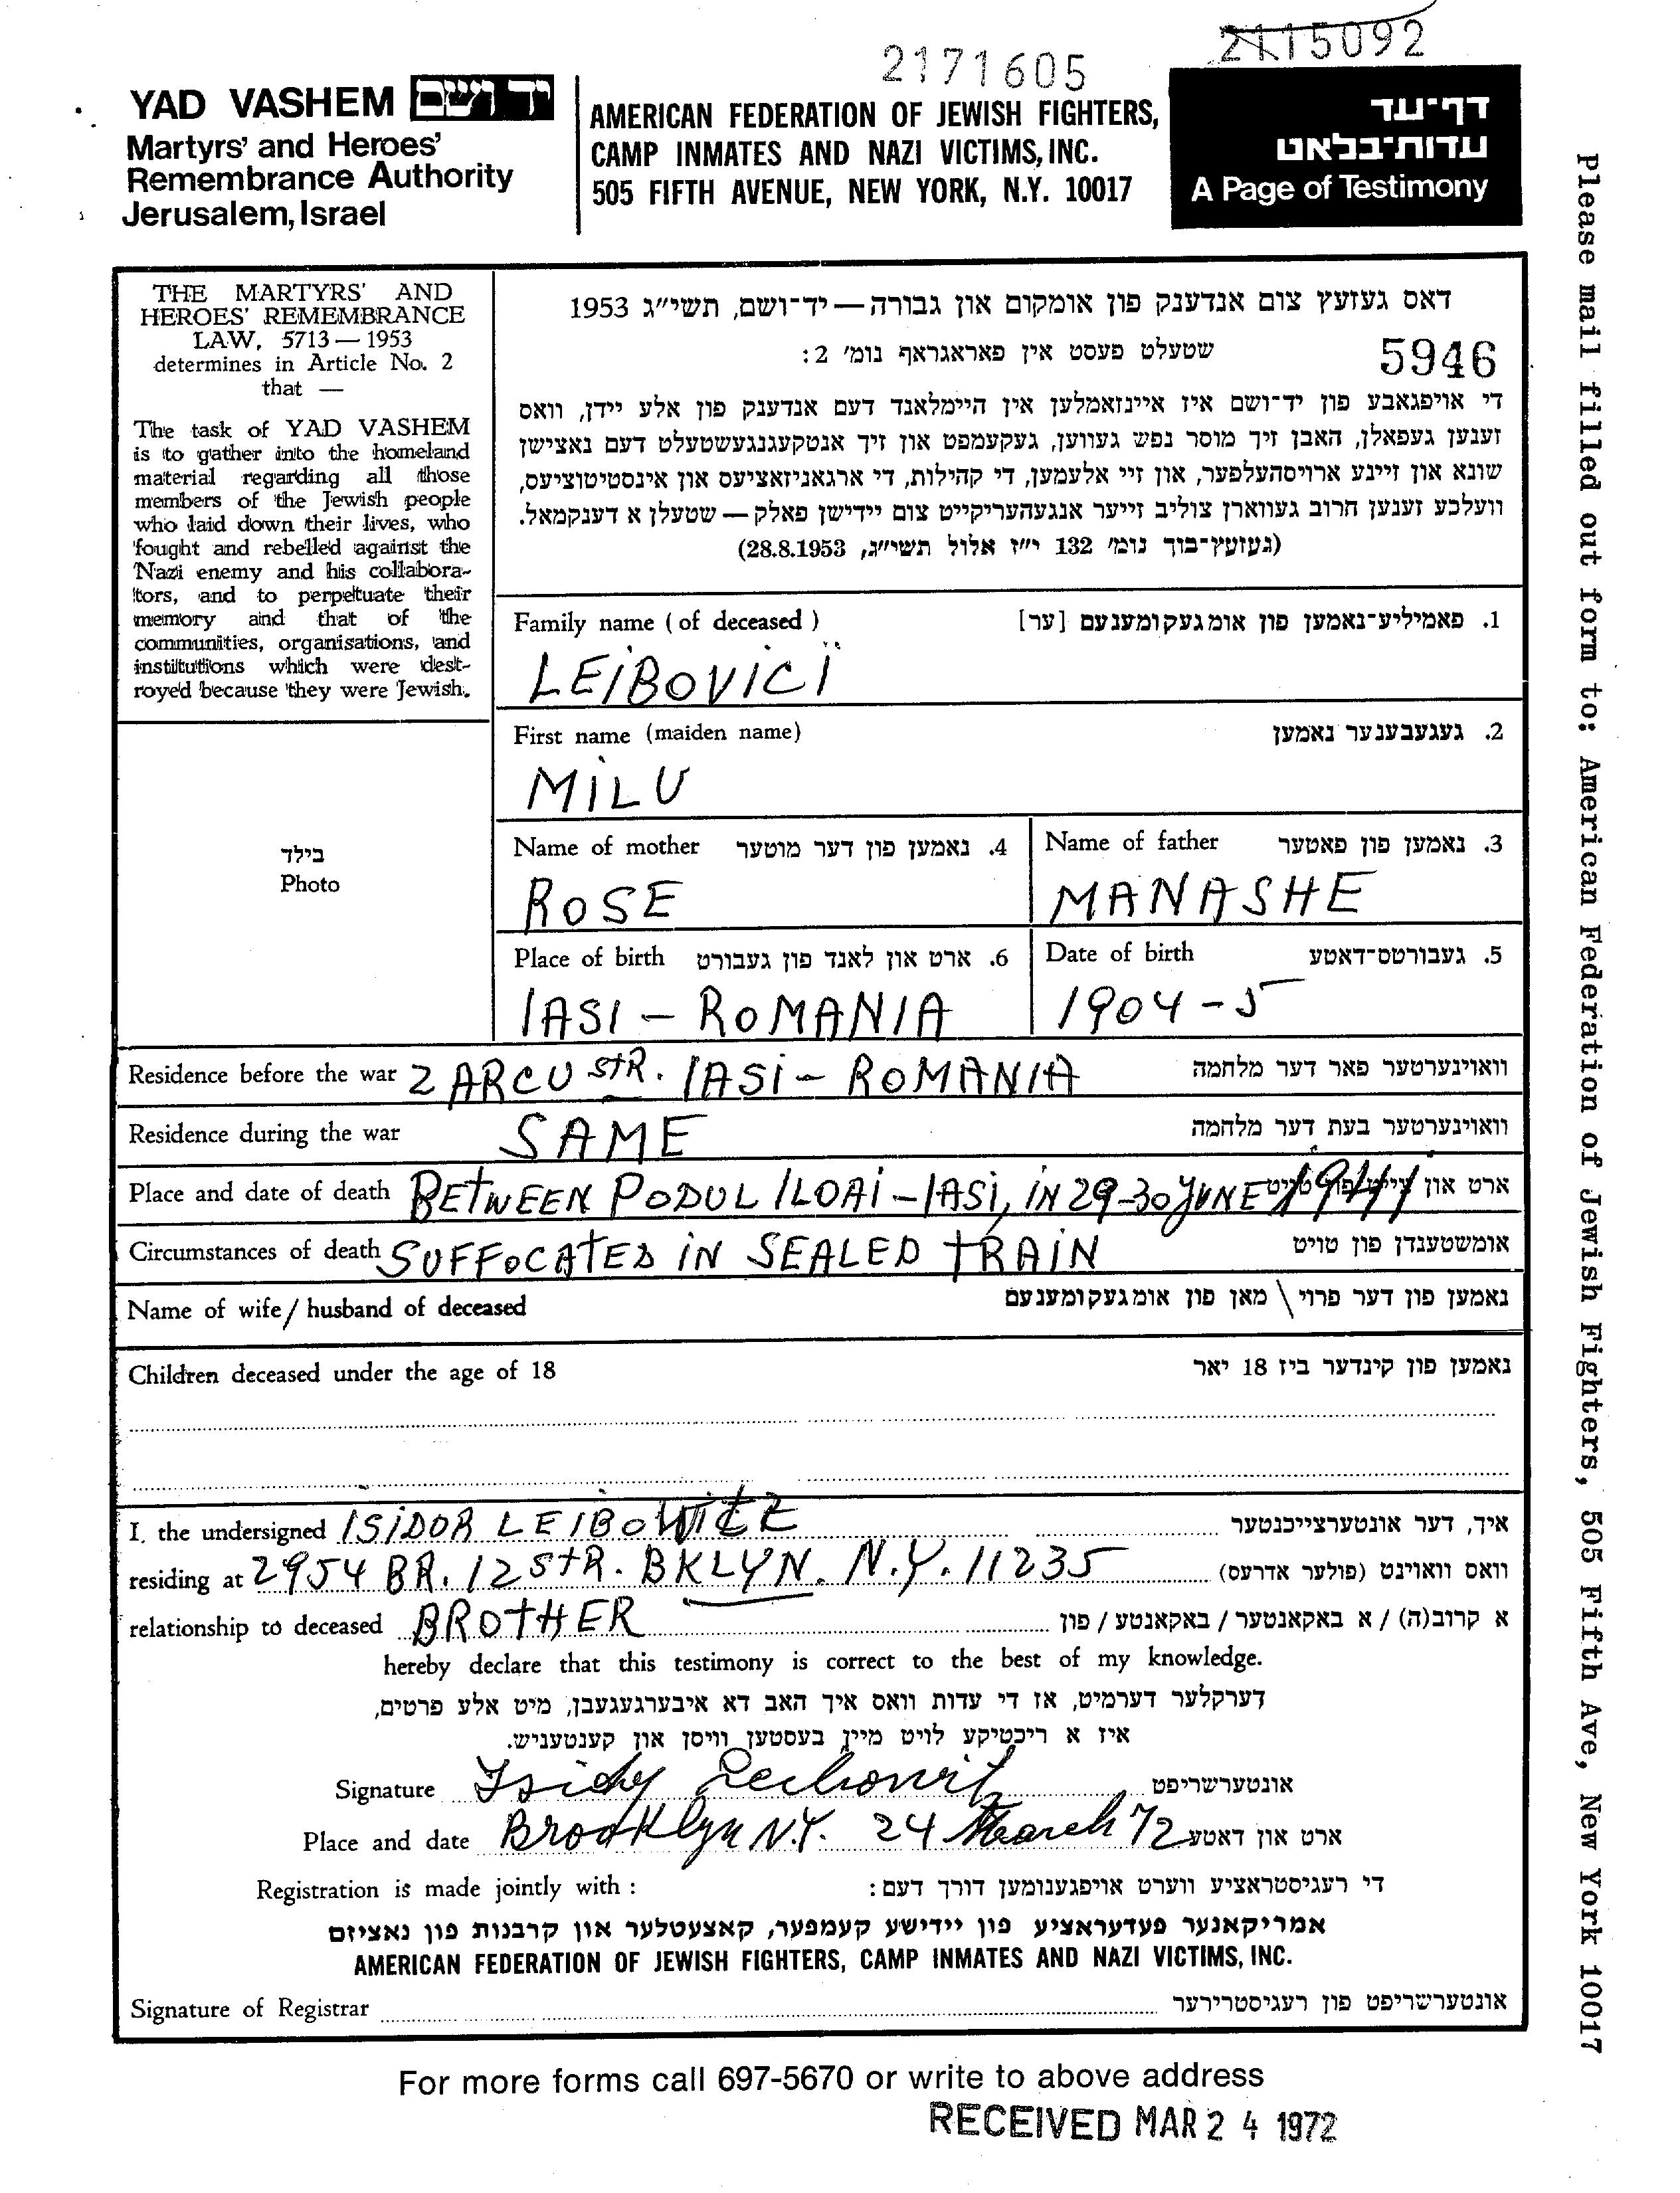 2115092
2171605
YAD VASHEM יד ושם
Martyrs' and Heroes'
Remembrance Authority
Jerusalem, Israel
AMERICAN FEDERATION OF JEWISH FIGHTERS,
CAMP INMATES AND NAZI VICTIMS, INC.
505 FIFTH AVENUE, NEW YORK, N.Y. 10017
דף־עד
עדות־בלאט
A Page of Testimony
THE MARTYRS' AND
HEROES' REMEMBRANCE
LAW, 5713 — 1953
determines in Article No. 2
that —
The task of YAD VASHEM
is to gather into the homeland
material regarding all those
members of the Jewish people
who laid down their lives, who
fought and rebelled against the
Nazi enemy and his collabora-
tors, and to perpetuate their
memory and that of the
communities, organisations, and
institutions which were dest-
royed because they were Jewish.
דאס געזעץ צום אנדענק פון אומקום און גבורה — יד־ושם, תשי״ג 1953
שטעלט פעסט אין פאראגראף נומ׳ 2:
5946
די אויפגאבע פון יד־ושם איז איינזאמלען אין היימלאנד דעם אנדענק פון אלע יידן, וואס
זענען געפאלן, האבן זיך מוסר נפש געווען, געקעמפט און זיך אנטקעגנגעשטעלט דעם נאצישן
שונא און זיינע ארויסהעלפער, און זיי אלעמען, די קהילות, די ארגאניזאציעס און אינסטיטוציעס,
וועלכע זענען חרוב געווארן צוליב זייער אנגעהעריקייט צום יידישן פאלק — שטעלן א דענקמאל.
(געזעץ־בוך נומ׳ 132 י״ז אלול תשי״ג, 28.8.1953)
Family name (of deceased) 1. פאמיליע־נאמען פון אומגעקומענעם [ער]
LEIBOVICI
First name (maiden name) 2. געגעבענער נאמען
MILU
בילד
Photo
Name of mother 4. נאמען פון דער מוטער
ROSE
Name of father 3. נאמען פון פאטער
MANASHE
Place of birth 6. ארט און לאנד פון געבורט
IASI – ROMANIA
Date of birth 5. געבורטס־דאטע
1904 – 5
Residence before the war 2 ARCU STR. IASI – ROMANIA וואוינערטער פאר דער מלחמה
Residence during the war SAME וואוינערטער בעת דער מלחמה
Place and date of death BETWEEN PODUL ILOAI – IASI, IN 29-30 JUNE 1941 ארט און צייט פון טויט
Circumstances of death SUFFOCATED IN SEALED TRAIN אומשטענדן פון טויט
Name of wife / husband of deceased נאמען פון דער פרוי \ מאן פון אומגעקומענעם
Children deceased under the age of 18 נאמען פון קינדער ביז 18 יאר
I, the undersigned ISIDOR LEIBOWITZ איך, דער אונטערצייכנטער
residing at 2954 BR. 12 STR. BKLYN. N.Y. 11235 וואס וואוינט (פולער אדרעס)
relationship to deceased BROTHER א קרוב(ה) / א באקאנטער / באקאנטע / פון
hereby declare that this testimony is correct to the best of my knowledge.
דערקלער דערמיט, אז די עדות וואס איך האב דא איבערגעגעבן, מיט אלע פרטים,
איז א ריכטיקע לויט מיין בעסטען וויסן און קענטעניש.
Signature Isidor Leibowitz אונטערשריפט
Place and date Brooklyn N.Y. 24 March 72 ארט און דאטע
Registration is made jointly with : די רעגיסטראציע ווערט אויפגענומען דורך דעם :
אמריקאנער פעדעראציע פון יידישע קעמפער, קאצעטלער און קרבנות פון נאציזם
AMERICAN FEDERATION OF JEWISH FIGHTERS, CAMP INMATES AND NAZI VICTIMS, INC.
Signature of Registrar אונטערשריפט פון רעגיסטרירער
For more forms call 697-5670 or write to above address
RECEIVED MAR 24 1972
Please mail filled out form to: American Federation of Jewish Fighters, 505 Fifth Ave, New York 10017